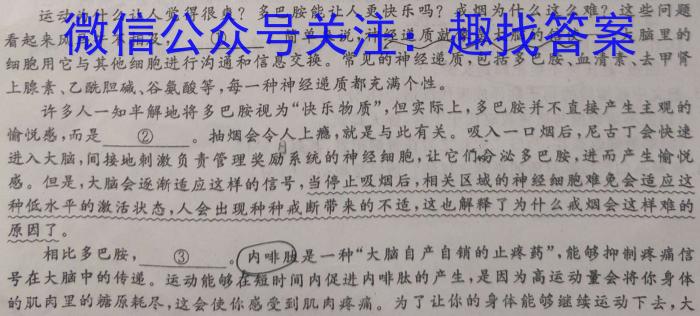 运动为什么让人觉得很爽？多巴胺能让人更快乐吗？戒烟为什么这么难？这些问题
看起来风
微信公众号关注：趣找答案
细胞用它与其他细胞进行沟通和信息交换。常见的神经递质，包括多巴胺、血清素、去甲肾
上腺素、乙酰胆碱、谷氨酸等，每一种神经递质都充满个性。
许多人一知半解地将多巴胺视为“快乐物质”，但实际上，多巴胺并不直接产生主观的
愉悦感，而是②。抽烟会令人上瘾，就是与此有关。吸入一口烟后，尼古丁会快速
进入大脑，间接地刺激负责管理奖励系统的神经细胞，让它们分泌多巴胺，进而产生愉悦
感。但是，大脑会逐渐适应这样的信号，当停止吸烟后，相关区域的神经细胞难免会适应这
种低水平的激活状态，人会出现种种戒断带来的不适，这也解释了为什么戒烟会这样难的
原因了。
相比多巴胺，③。内啡肽是一种“大脑自产自销的止疼药”，能够抑制疼痛信
号在大脑中的传递。运动能够在短时间内促进内啡肽的产生，是因为高运动量会将你身体
的肌肉里的糖原耗尽，这会使你感受到肌肉疼痛。为了让你的身体能够继续运动下去，大